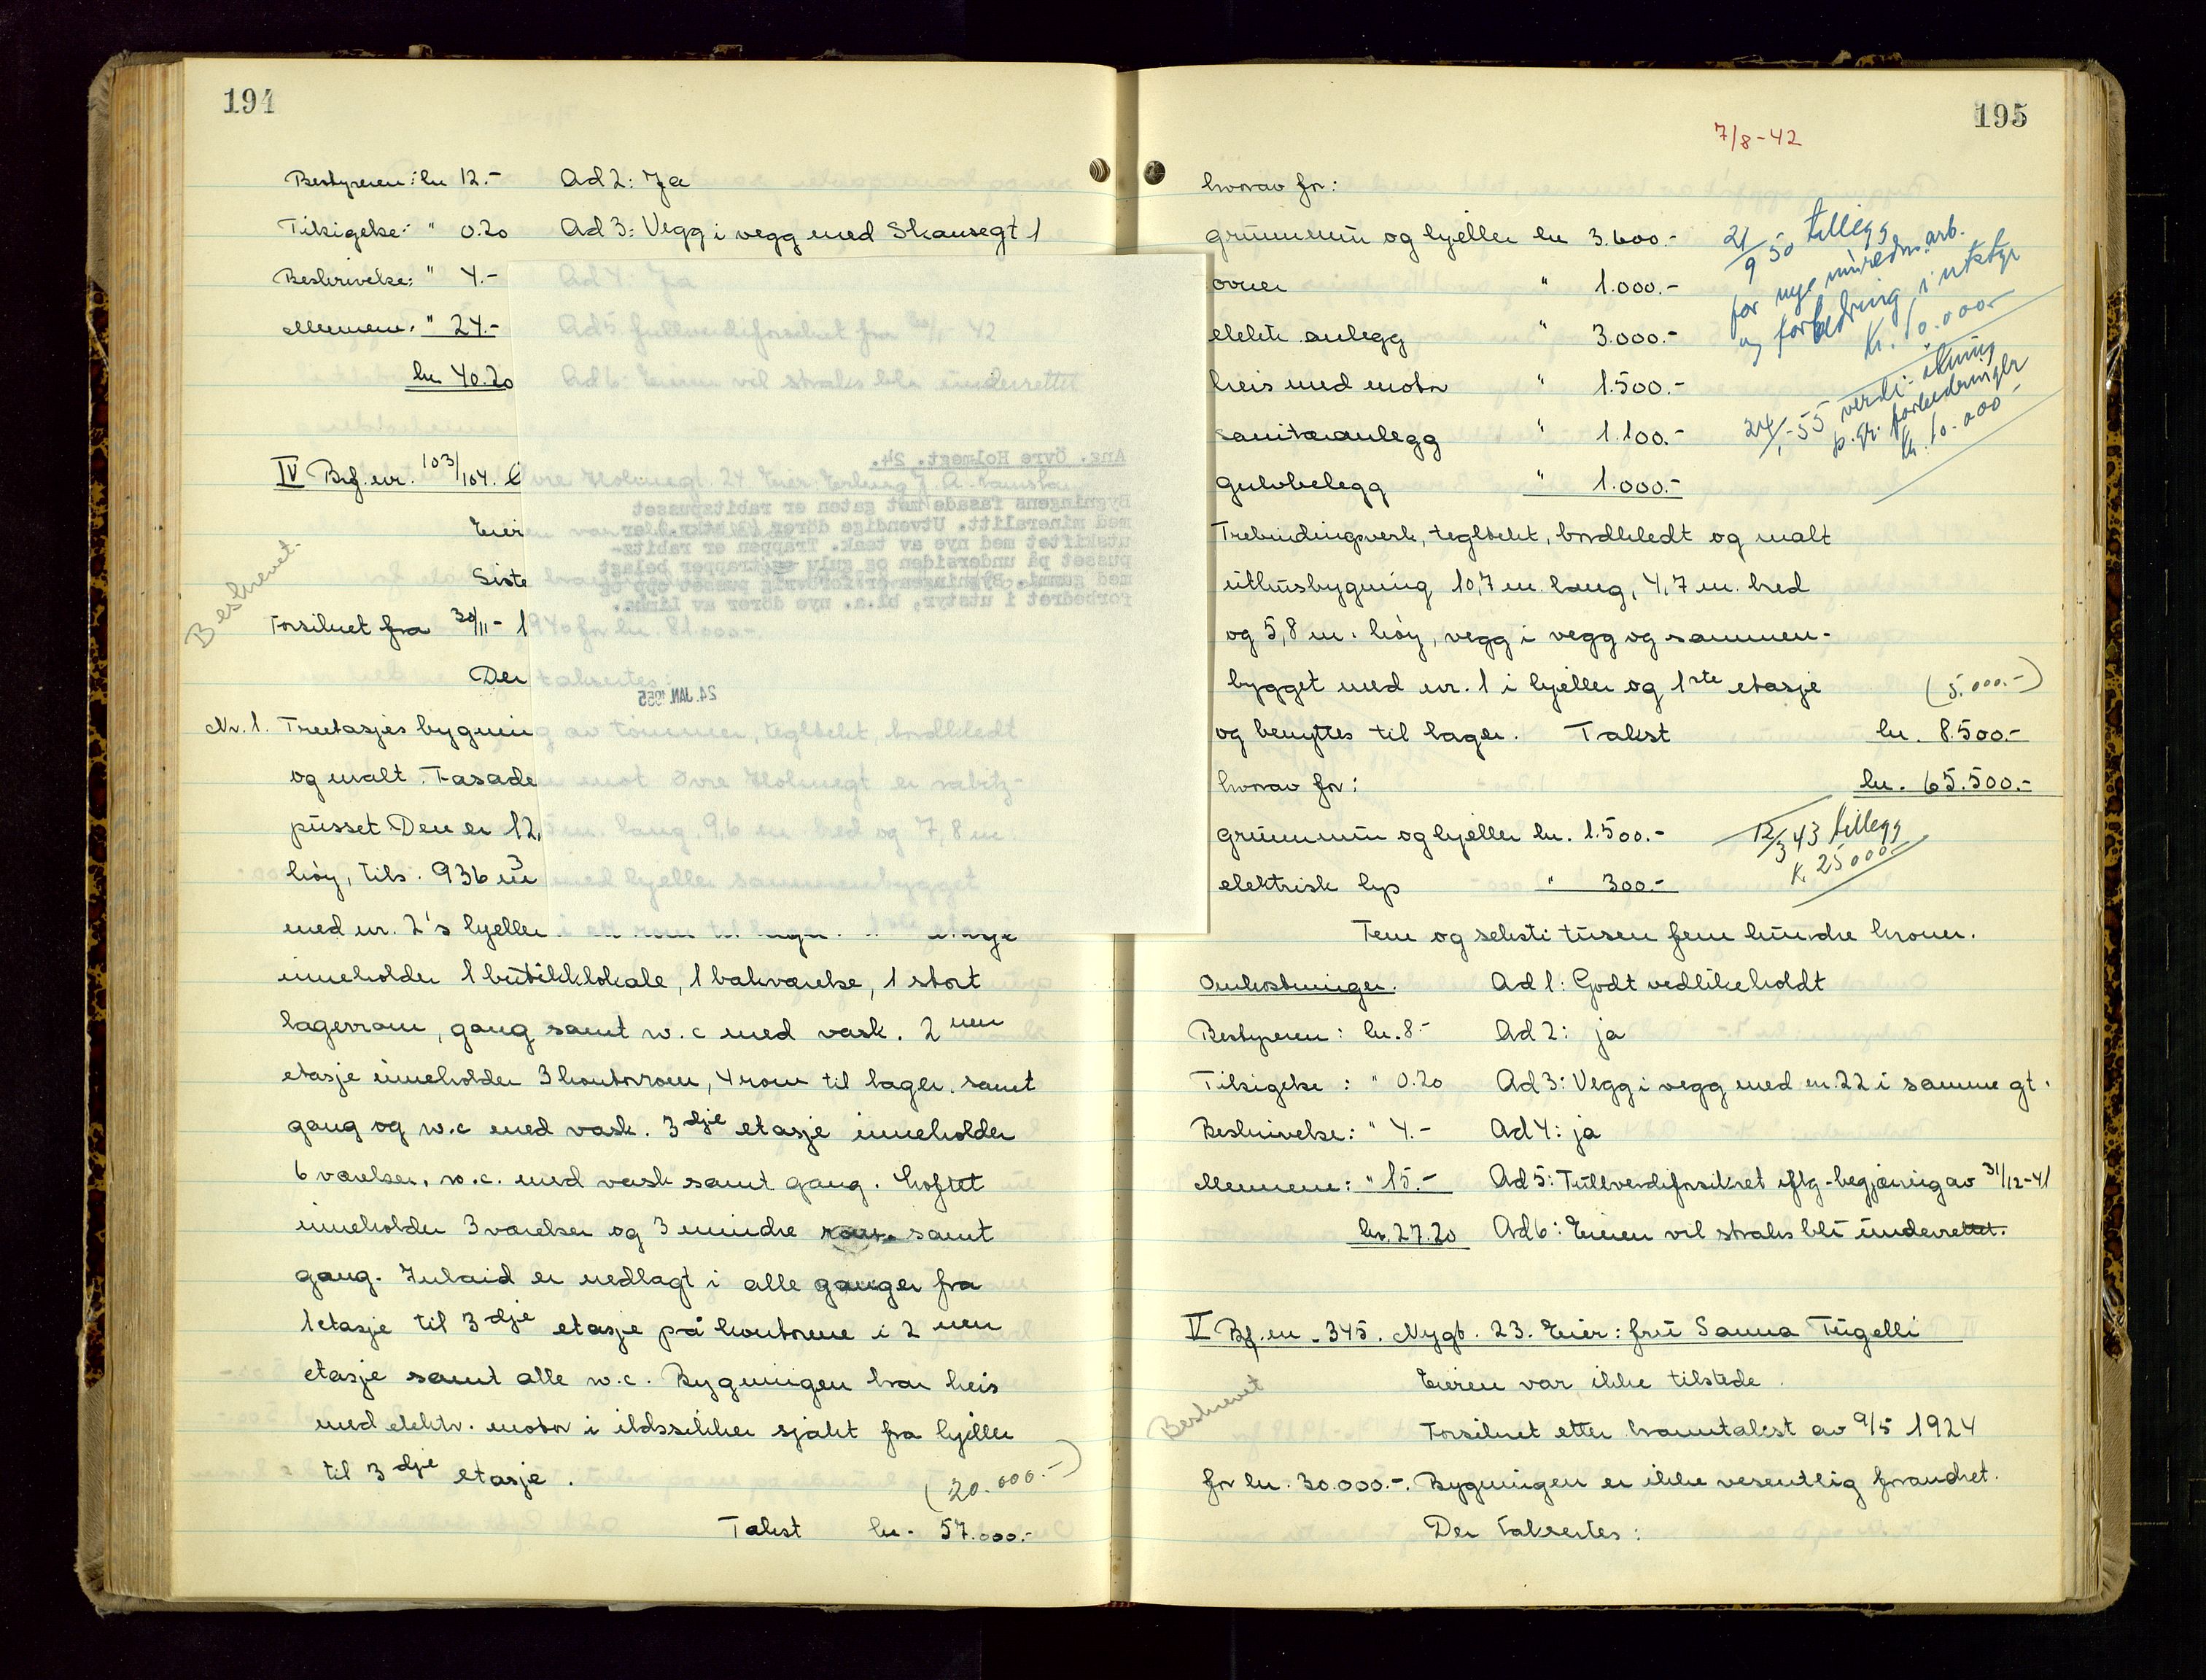 194
Bestyreren: kr 12.- Ad 2: Ja
Tilsigelse: " 0.20 Ad 3: Vegg i vegg med Skansegt 1
Beskrivelse: " 4.- Ad 4: Ja
Mennene: " 24.- Ad 5 fullverdiforsikret fra 42
kr. 40.20 Ad 6: Eieren vil straks bli underrettet
Ang. Övre Holmegt. 24.
IV Brf. nr. 103/104. Övre Holmegt. 24 Eier: Erling
Bygningens fasade mot gaten er rabitspusset
med mineralitt. Utvendige dörer er
utskiftet med nye av teak. Trappen er rabitz-
pusset på undersiden og gulv og trapper belagt
med gummi. Bygningen er forövrig pusset opp og
forbedret i utstyr, bl.a. nye dörer av Limba.
Eieren var
Siste
Beskrevet.
Forsikret fra 30/11- 1940 for kr. 81.000.-
Der takseres:
24. JAN. 1955
Nr. 1. Treetasjes bygning av tömmer, teglteket, bordkledt
og malt. Fasaden mot Övre Holmegt er rabitz-
pusset Den er 12, m. lang, 9,6 m bred og 7,8 m.
höy, tils. 936 m3 med kjeller sammenbygget
med nr. 2's kjeller i ett rom til lager. etasje
inneholder 1 butikklokale, 1 bakværelse, 1 stort
lagerrom, gang samt w.c med vask. 2nen
etasje inneholder 3 kontorrom, 4 rom til lager. samt
gang og w.c med vask. 3dje etasje inneholder
6 værelser, w.c. med vask samt gang. Loftet
inneholder 3 værelser og 3 mindre rom samt
gang. Inlaid er nedlagt i alle ganger fra
1 etasje til 3dje etasje på kontorene i 2nen
etasje samt alle w.c. Bygningen har heis
med elektr. motor i ildssikker sjakt fra kjeller
til 3dje etasje.
(20.000.-)
Takst kr. 57.000.-
195
7/8-42
hvorav for:
grunnmur og kjeller kr 3.600.-
ovner " 1.000.-
elektr. anlegg " 3.000.-
heis med motor " 1.500.-
sanitæranlegg " 1.100.-
gulvbelegg " 1.000.-
21/9 50 tillegg
for nye innredn. arb.
og forbedring i utstyr
kr. 10.000.-
24/1-55 verdi-ökning
p.gr. forbedringer
kr. 10.000.-
Trebindingsverk, teglteket, bordkledt og malt
uthusbygning 10,7 m. lang, 4,7 m. bred
og 5,8 m. höy, vegg i vegg og sammen-
bygget med nr. 1 i kjeller og 1ste etasje
(5.000.-)
og benyttes til lager. Takst kr. 8.500.-
hvorav for: kr. 65.500.-
grunnmur og kjeller kr. 1.500.-
elektrisk lys " 300.-
12/3 43 tillegg
k. 25000.-
Fem og seksti tusen fem hundre kroner.
Omkostninger. Ad 1: Godt vedlikeholdt
Bestyreren: kr. 8.- Ad 2: ja
Tilsigelse: " 0.20 Ad 3: Vegg i vegg med nr. 22 i samme gt.
Beskrivelse: " 4.- Ad 4: ja
Mennene: " 15.- Ad 5: Fullverdiforsikret iflg-begjæring av 31/12-41
kr. 27.20 Ad 6: Eieren vil straks bli underrettet.
V Bf. nr. 345. Nygt. 23. Eier: fru Sanna Fugelli
Eieren var ikke tilstede.
Beskrevet
Forsikret etter branntakst av 9/5 1924
for kr. 30.000.-. Bygningen er ikke vesentlig forandret.
Der takseres: